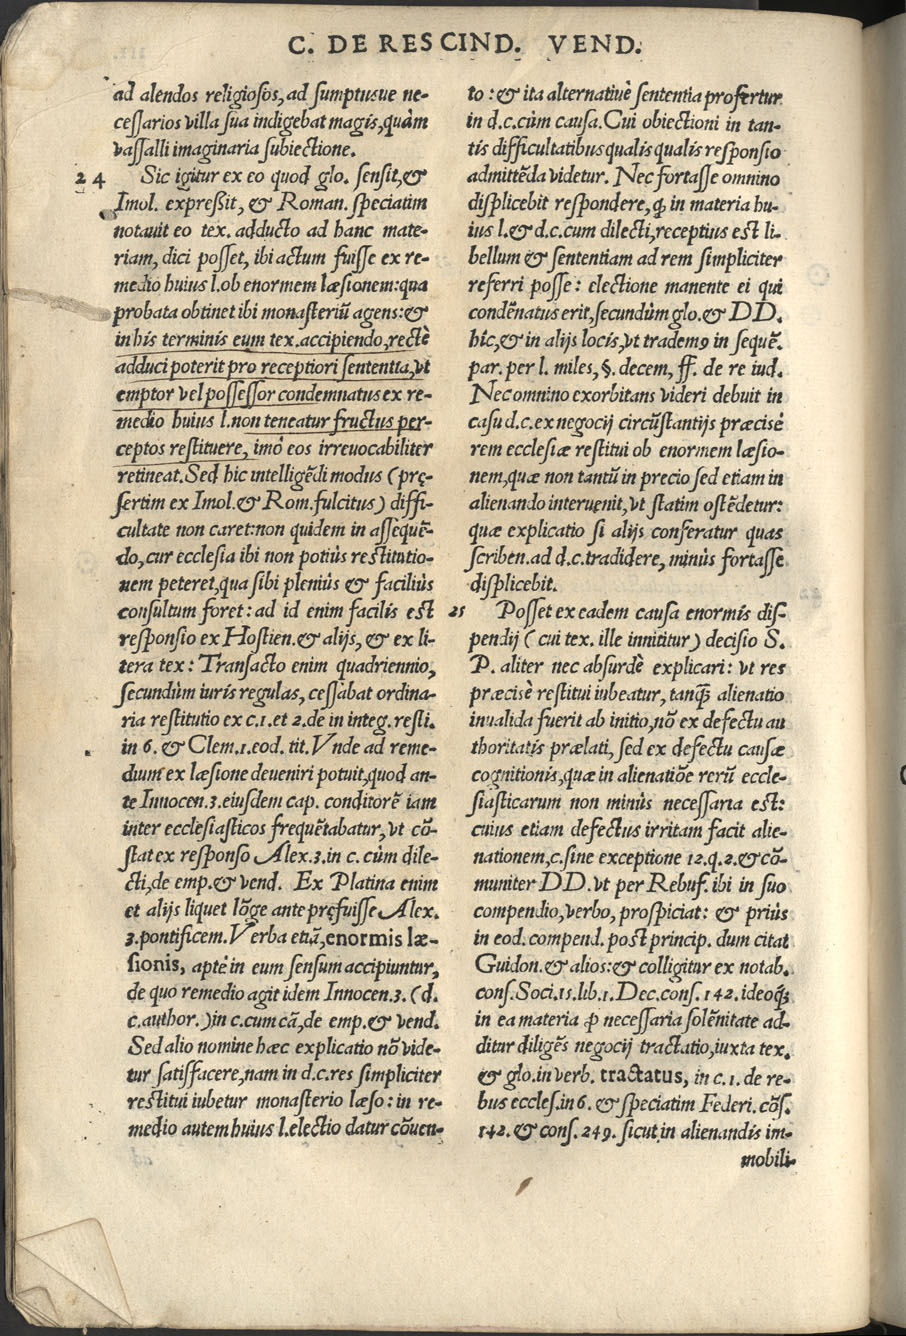 C. DE RESCIND. VEND.
ad alendos religiosos, ad sumptusue ne-
cessarios villa sua indigebat magis, quàm
vassalli imaginaria subiectione.
24 Sic igitur ex eo quod glo. sensit, &
Imol. expreßit, & Roman. speciatim
notauit eo tex. adducto ad hanc mate-
riam, dici posset, ibi actum fuisse ex re-
medio huius l. ob enormem læsionem: qua
probata obtinet ibi monasteriũ agens: &
in his terminis eum tex. accipiendo, rectè
adduci poterit pro receptiori sententia, vt
emptor vel possessor condemnatus ex re-
medio huius l. non teneatur fructus per-
ceptos restituere, imò eos irreuocabiliter
retineat. Sed hic intelligẽdi modus (prę-
sertim ex Imol. & Rom. fulcitus) diffi-
cultate non caret: non quidem in assequẽ-
do, cur ecclesia ibi non potiùs restitutio-
nem peteret, qua sibi pleniùs & faciliùs
consultum foret: ad id enim facilis est
responsio ex Hostien. & alijs, & ex li-
tera tex: Transacto enim quadriennio,
secundùm iuris regulas, cessàbat ordina-
ria restitutio ex c. 1. et 2. de in integ. resti.
in 6. & Clem. 1. eod. tit. Vnde ad reme-
dium ex læsione deueniri potuit, quod an-
te Innocen. 3. eiusdem cap. conditorẽ iam
inter ecclesiasticos frequẽtabatur, vt cõ-
stat ex responso Alex. 3. in c. cùm dile-
cti, de emp. & vend. Ex Platina enim
et alijs liquet lõge ante pręfuisse Alex.
3. pontificem. Verba etiã, enormis læ-
sionis, aptè in eum sensum accipiuntur,
de quo remedio agit idem Innocen. 3. (d.
c. author.) in c. cum cã, de emp. & vend.
Sed alio nomine hæc explicatio nõ vide-
tur satisfacere, nam in d. c. res simpliciter
restitui iubetur monasterio læso: in re-
medio autem huius l. electio datur cõuen-
to: & ita alternatiuè sententia profertur
in d. c. cùm causa. Cui obiectioni in tan-
tis difficultatibus qualis qualis responsio
admittẽda videtur. Nec fortasse omnino
displicebit respondere, ꝙ in materia hu-
ius l. & d. c. cum dilecti, receptius est li-
bellum & sententiam ad rem simpliciter
referri posse: electione manente ei qui
condẽnatus erit, secundùm glo. & DD.
hîc, & in alijs locis, vt tradem9 in sequẽ.
par. per l. miles, §. decem, ff. de re iud.
Nec omnino exorbitans videri debuit in
casu d. c. ex negocij circũstantijs præcisè
rem ecclesiæ restitui ob enormem læsio-
nem, quæ non tantũ in precio sed etiam in
alienando interuenit, vt statim ostẽdetur:
quæ explicatio si alijs conferatur quas
scriben. ad d. c. tradidere, minùs fortasse
displicebit.
25 Posset ex eadem causa enormis dis-
pendij (cui tex. ille innititur) decisio S.
P. aliter nec absurdè explicari: vt res
præcisè restitui iubeatur, tanq̃ alienatio
inualida fuerit ab initio, nõ ex defectu au
thoritatis prælati, sed ex defectu causæ
cognitionis, quæ in alienatiõe rerũ eccle-
siasticarum non minùs necessaria est:
cuius etiam defectus irritam facit alie-
nationem, c. sine exceptione 12. q. 2. & cõ-
muniter DD. vt per Rebuf. ibi in suo
compendio, verbo, prospiciat: & priùs
in eod. compend. post princip. dum citat
Guidon. & alios: & colligitur ex notab.
cons. Soci. 15. lib. 1. Dec. cons. 142. ideoq̃
in ea materia ꝓ necessaria solẽnitate ad-
ditur diligẽs negocij tractatio, iuxta tex.
& glo. in verb. tractatus, in c. 1. de re-
bus eccles. in 6. & speciatim Federi. cõs.
142. & cons. 249. sicut in alienandis im-
mobili-